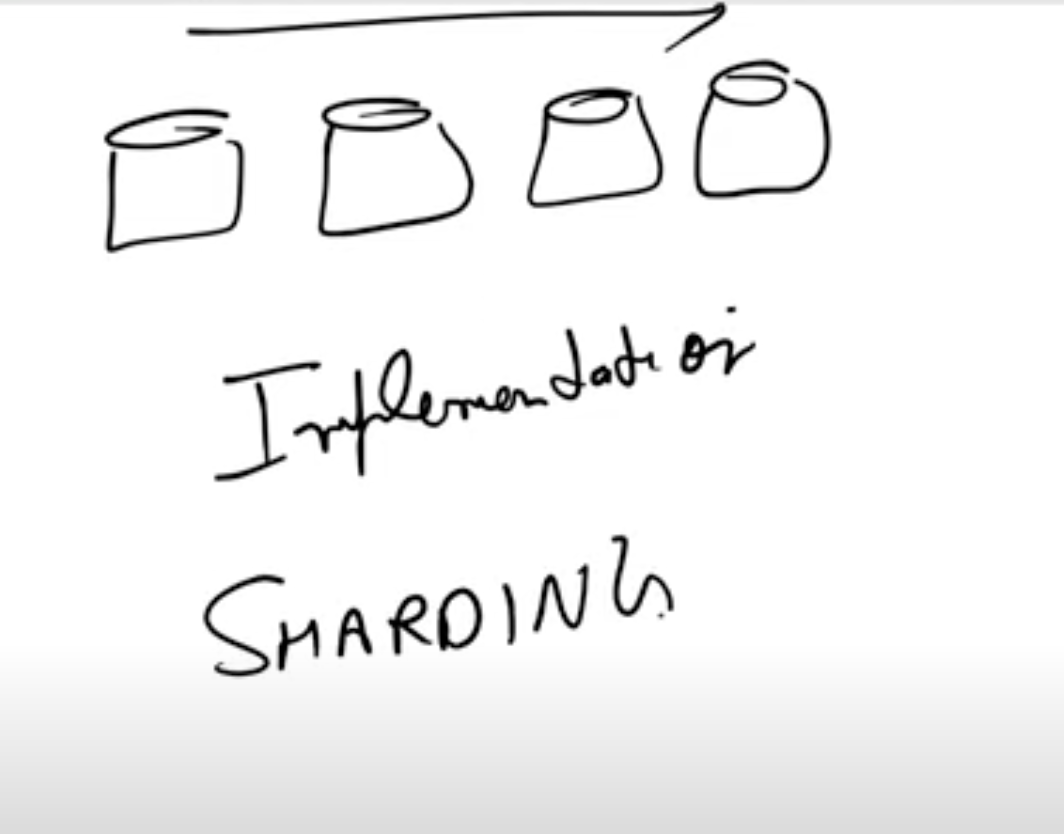 Implementation
SHARDING